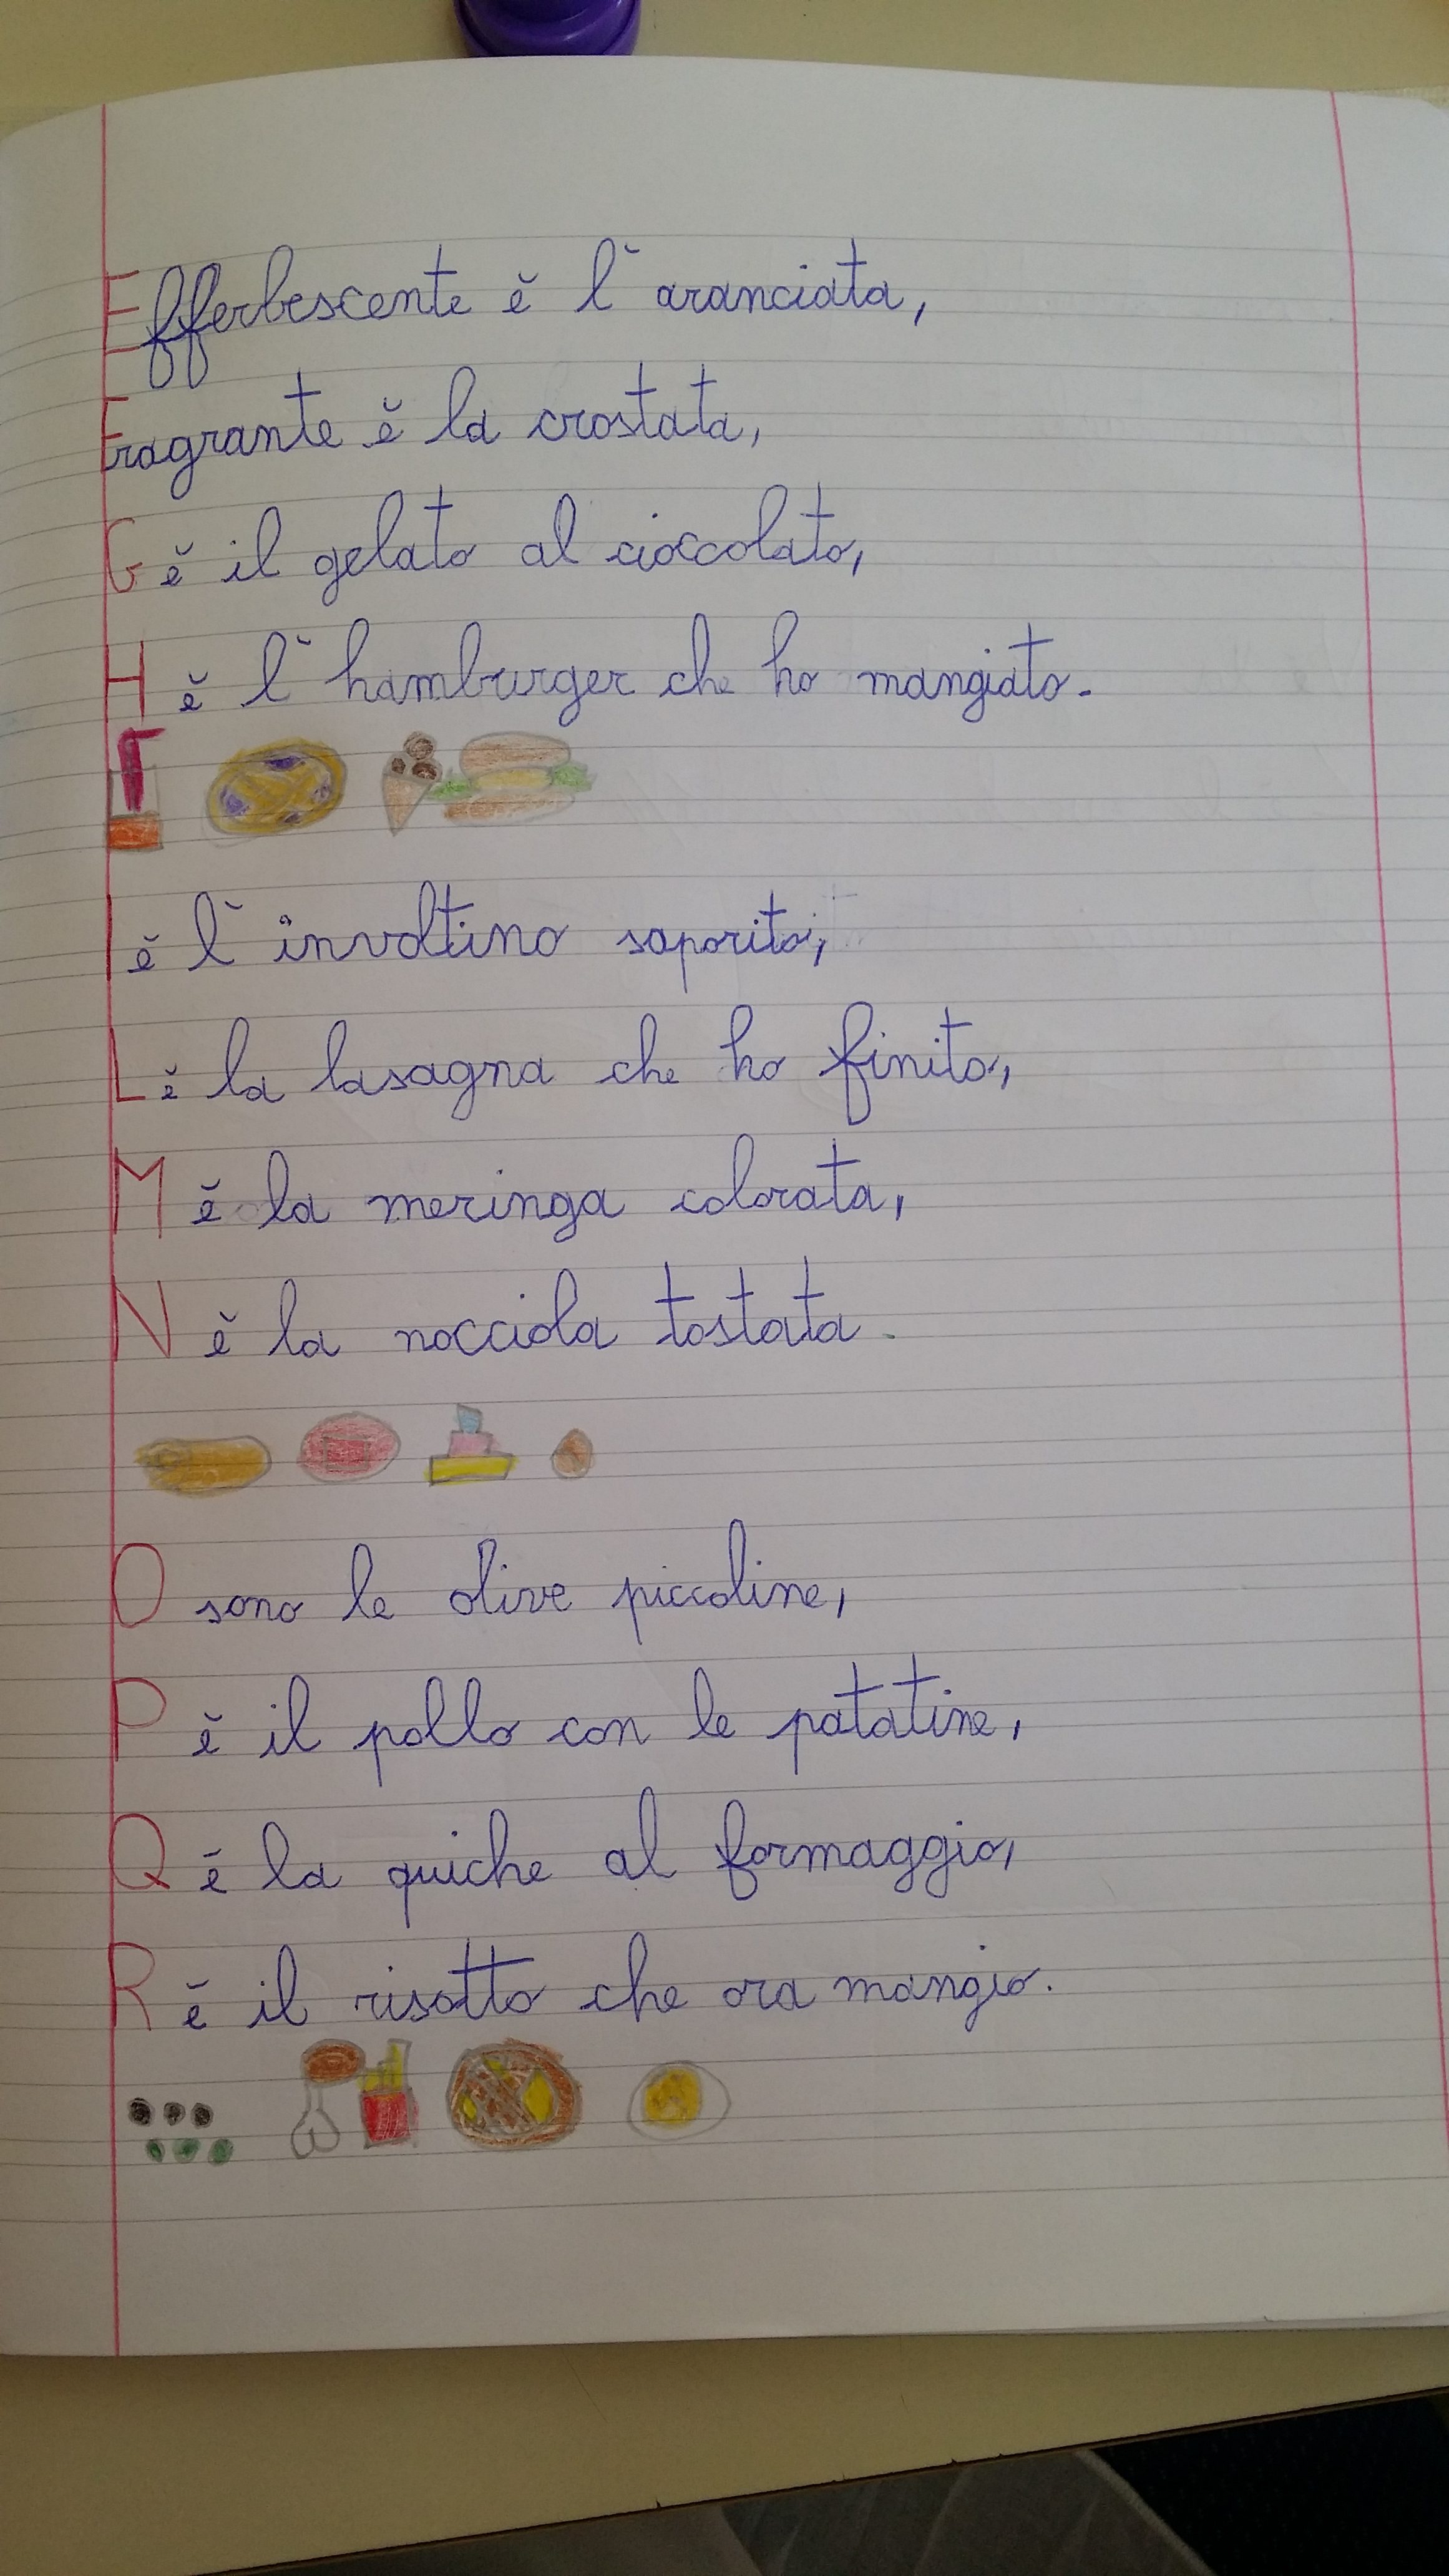 Efferbescente è l'aranciata,
Fragrante è la crostata,
G è il gelato al cioccolato,
H è l'hamburger che ho mangiato.
I è l'involtino saporito,
L è la lasagna che ho finito,
M è la meringa colorata,
N è la nocciola tostata.
O sono le olive piccoline,
P è il pollo con le patatine,
Q è la quiche al formaggio,
R è il risotto che ora mangio.